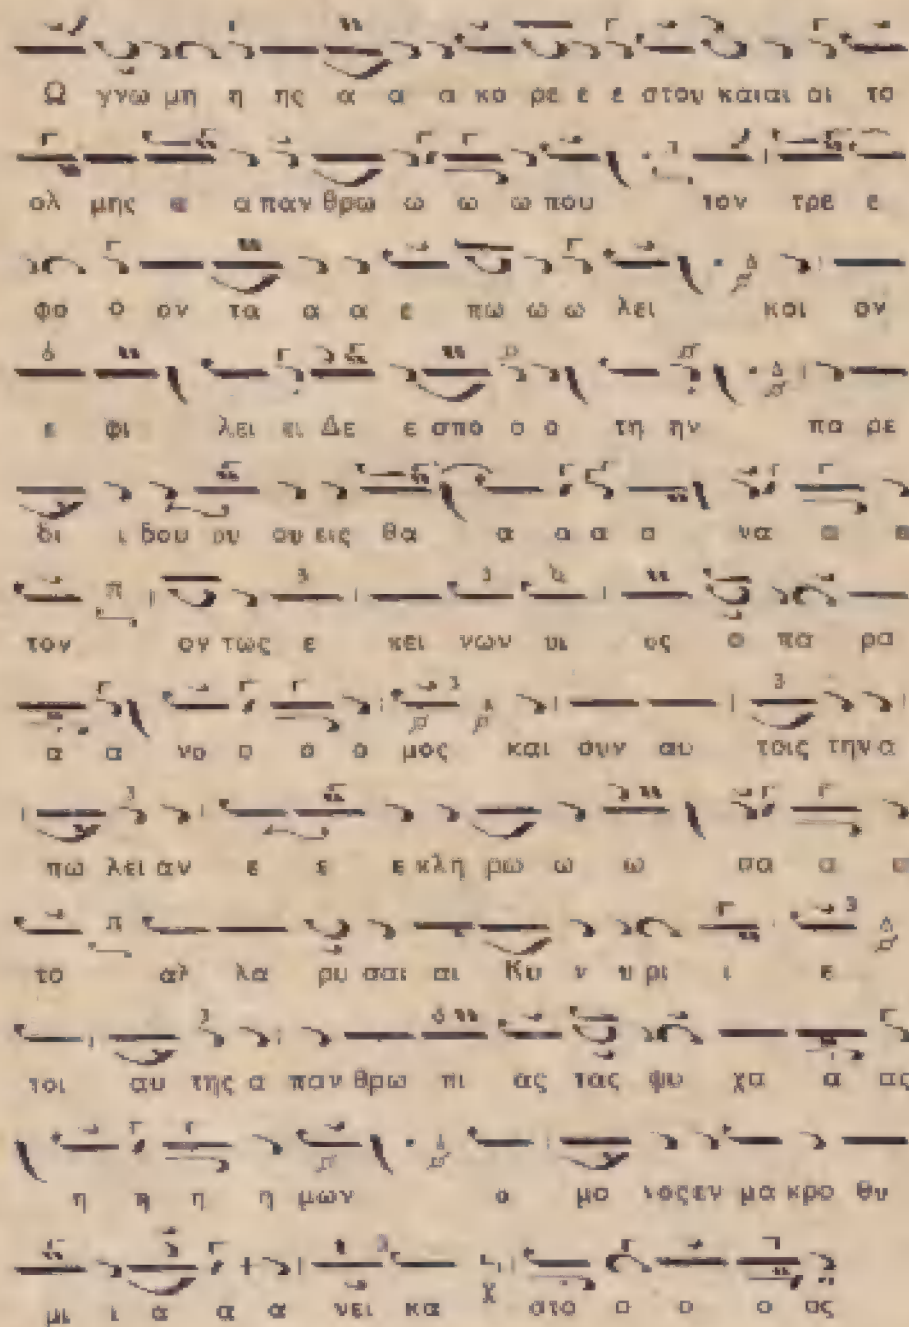 Ω γνω μη η ης α α α κο ρε ε ε ε στου και αι αι το
ολ μης α α παν θρω ω ω ω που τον τρε ε
φο ο ον τα α α ε πω ω ω λει και ον
ε φι λει ει Δε ε σπο ο ο τη ην πα ρε
δι ι δου ου ου εις θα α α α α να α α
τον ον τως ε κει νων υι ος ο πα ρα
α α νο ο ο ο μος και συν αυ τοις την α
πω λει αν ε ε ε κλη ρω ω ω σα α α
το αλ λα ρυ σαι αι Κυ υ υ ρι ι ε
τοι αυ της α παν θρω πι ας τας ψυ χα α ας
η η η η μων ο μο νος εν μα κρο θυ
μι ι α α α νει κα στο ο ο ο ος